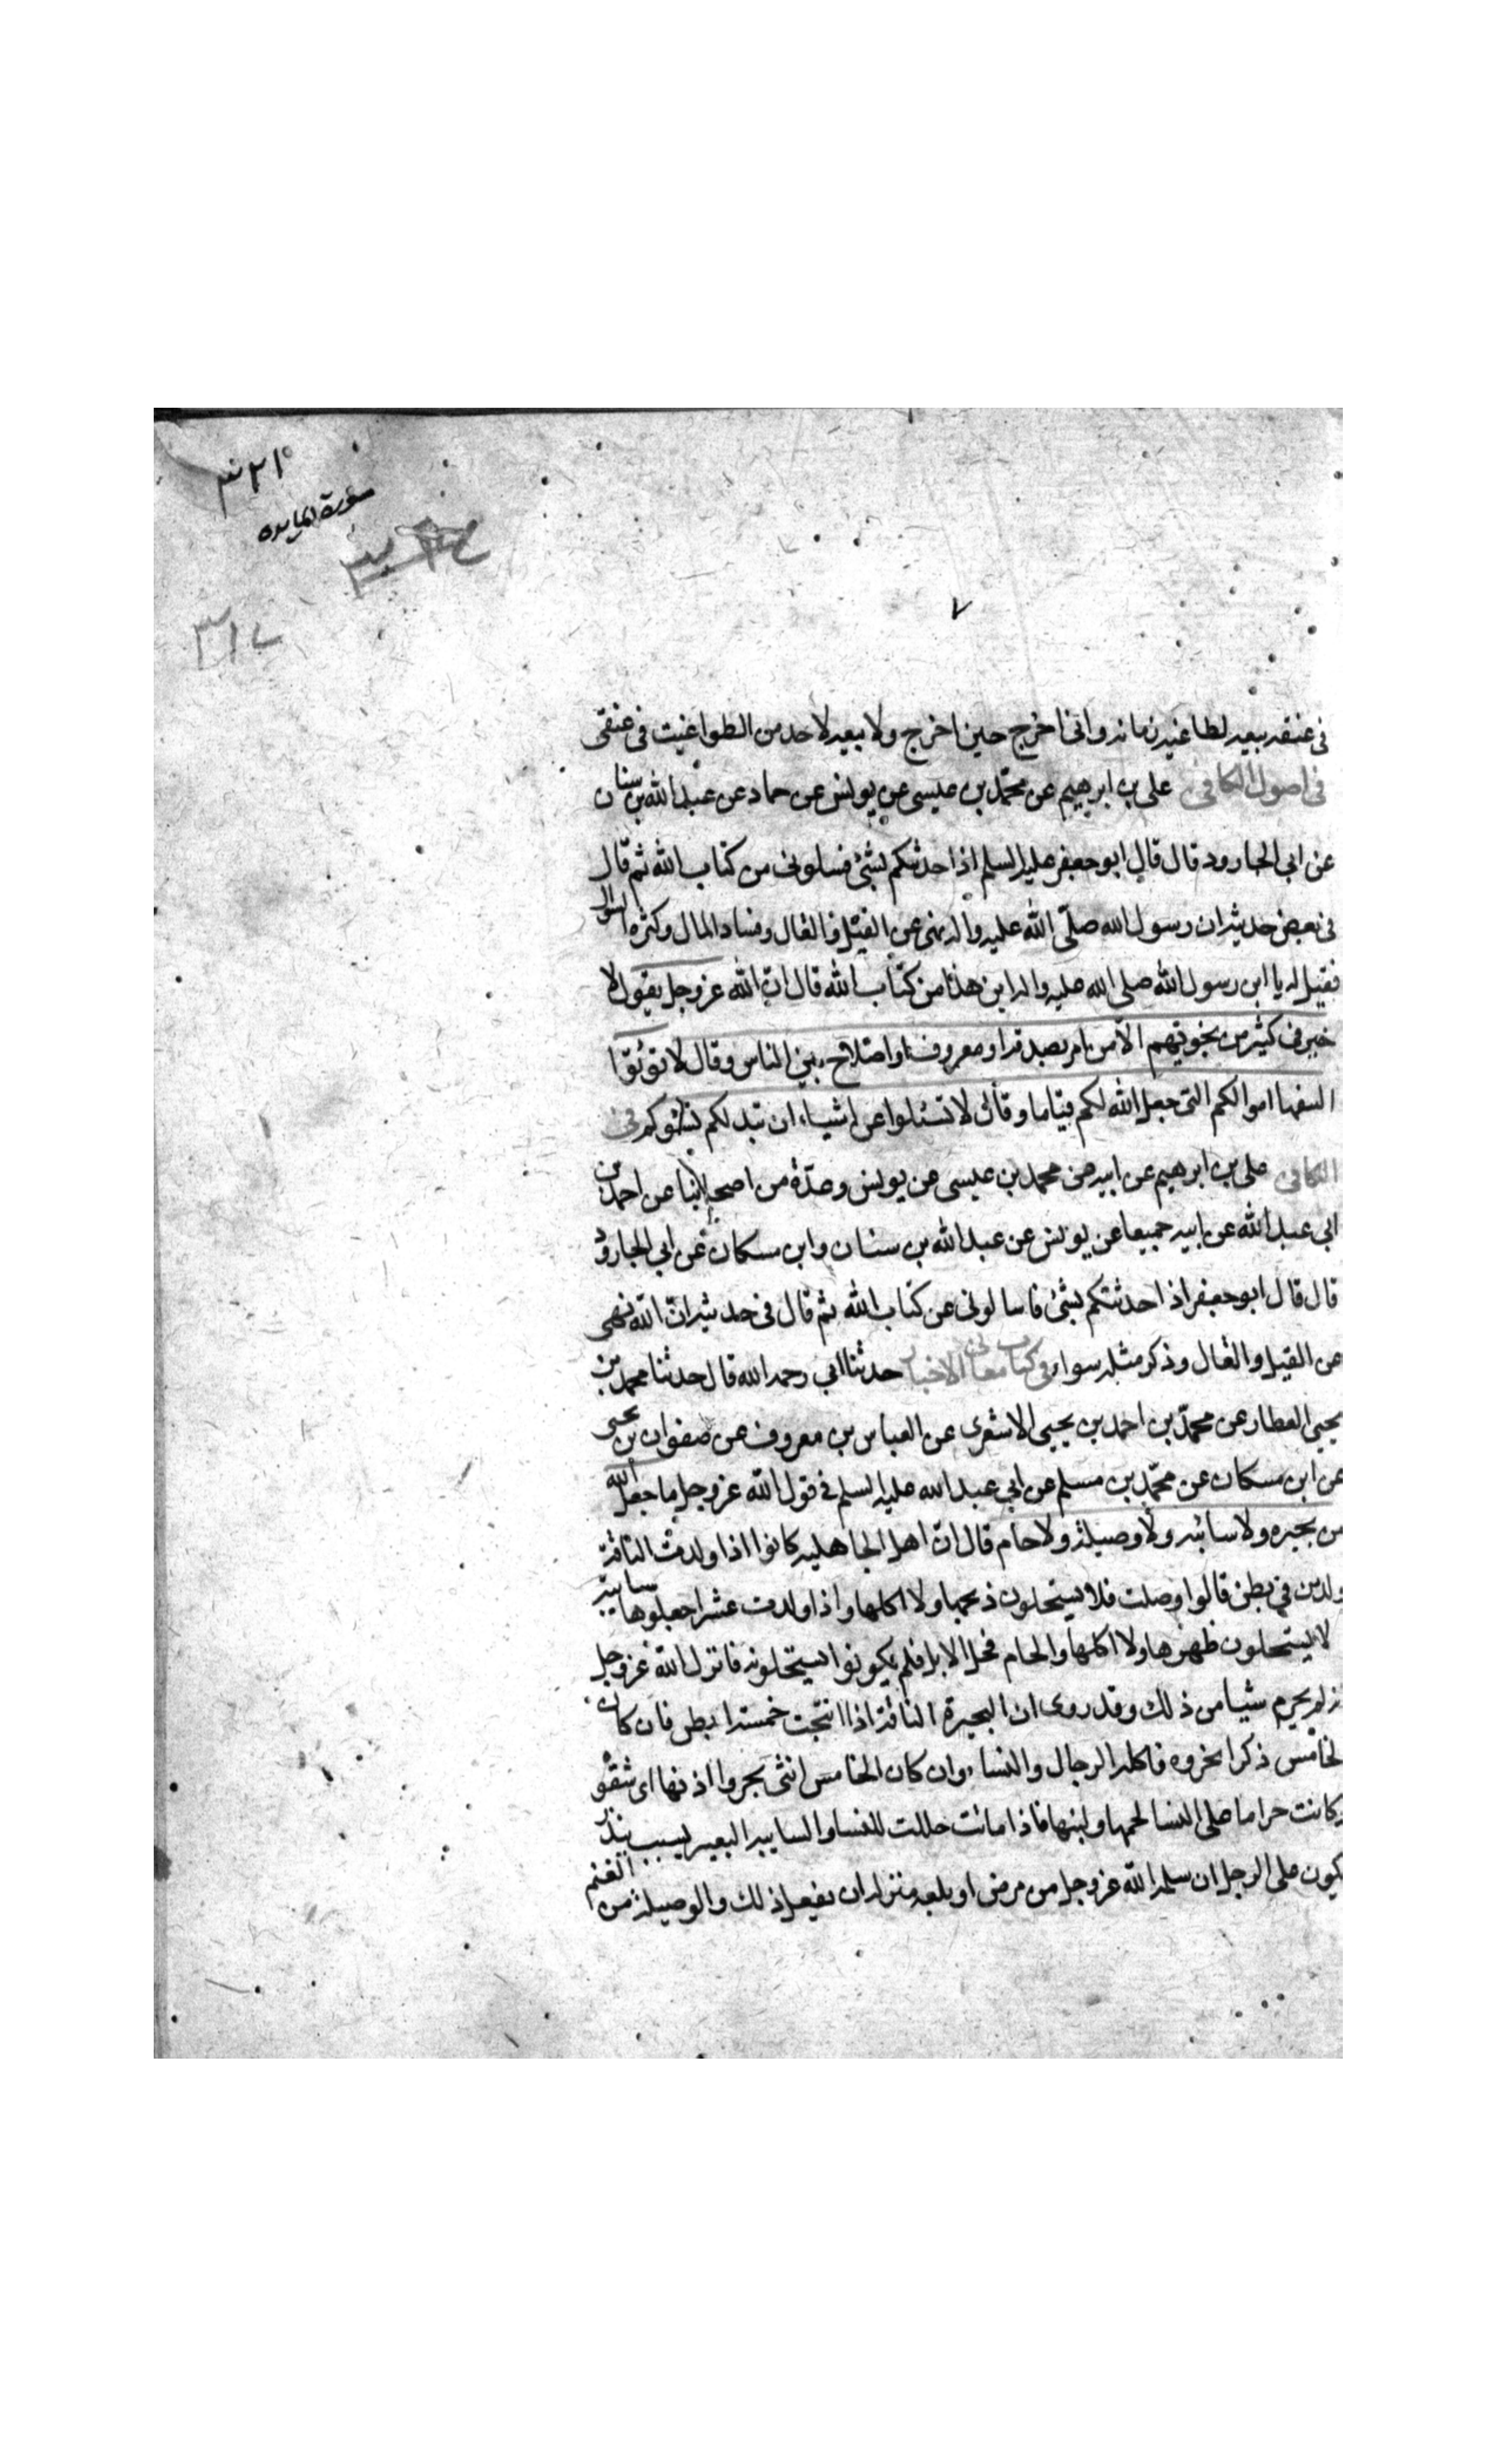 سورة المايده
٧
فى عنقه بيعه لطاغية زمانه وانى اخرج حين اخرج ولا بيعه لاحد من الطواغيت فى عنقى
فى اصول الكافى على بن ابرهيم عن محمّد بن عيسى عن يونس عن حماد عن عبد الله بن سنان
عن ابى الجارود قال قال ابو جعفر عليه السلم اذا حدثتكم بشئ فسلونى من كتاب الله ثم قال
فى بعض حديثه ان رسول الله صلّى الله عليه واله نهى عن القيل والقال وفساد المال وكثرة السؤال
فقيل له يا ابن رسول الله صلى الله عليه واله اين هذا من كتاب الله قال انّ الله عز وجل يقول لا
خير فى كثير من نجويهم الّا من امر بصدقه او معروف او اصلاح بين الناس وقال لا تؤتوا
السفهاء اموالكم التى جعل الله لكم قياما وقال لا تسئلوا عن اشياء ان تبد لكم تسؤكم فى
الكافى على بن ابرهيم عن ابيه عن محمد بن عيسى عن يونس وعدّة من اصحابنا عن احمد بن
ابى عبد الله عن ابيه جميعا عن يونس عن عبد الله بن سنان وابن مسكان عن ابى الجارود
قال قال ابو جعفر اذا حدثتكم بشئ فاسالونى عن كتاب الله ثم قال فى حديثه انّ الله نهى
عن القيل والقال وذكر مثله سواء فى كتاب معانى الاخبار حدثنا ابى رحمه الله قال حدثنا محمد بن
يحيى العطار عن محمّد بن احمد بن يحيى الاشعرى عن العباس بن معروف عن صفوان بن يحيى
عن ابن مسكان عن محمّد بن مسلم عن ابى عبد الله عليه السلم فى قول الله عز وجل ما جعل الله
من بحيره ولا سائبه ولا وصيلة ولا حام قال انّ اهل الجاهليه كانوا اذا ولدت الناقة
ولدين فى بطن قالوا وصلت فلا يستحلون ذبحها ولا اكلها واذا ولدت عشرا جعلوها سايبة
لا يستحلون ظهرها ولا اكلها والحام فحل الابل فلم يكونوا يستحلونه فانزل الله عز وجل
انه لم يحرم شيا من ذلك وقد روى ان البحيرة الناقة اذا انتجت خمسة ابطن فان كان
الخامس ذكرا نحروه فاكله الرجال والنساء وان كان الخامس انثى بحروا اذنها اى شقو
وكانت حراما على النسا لحمها ولبنها فاذا ماتت حللت للنسا والسايبه البعير يسيب بنذر
يكون على الرجل ان سلمه الله عز وجل من مرض او بلغه منزله ان يفعل ذلك والوصيلة من الغنم